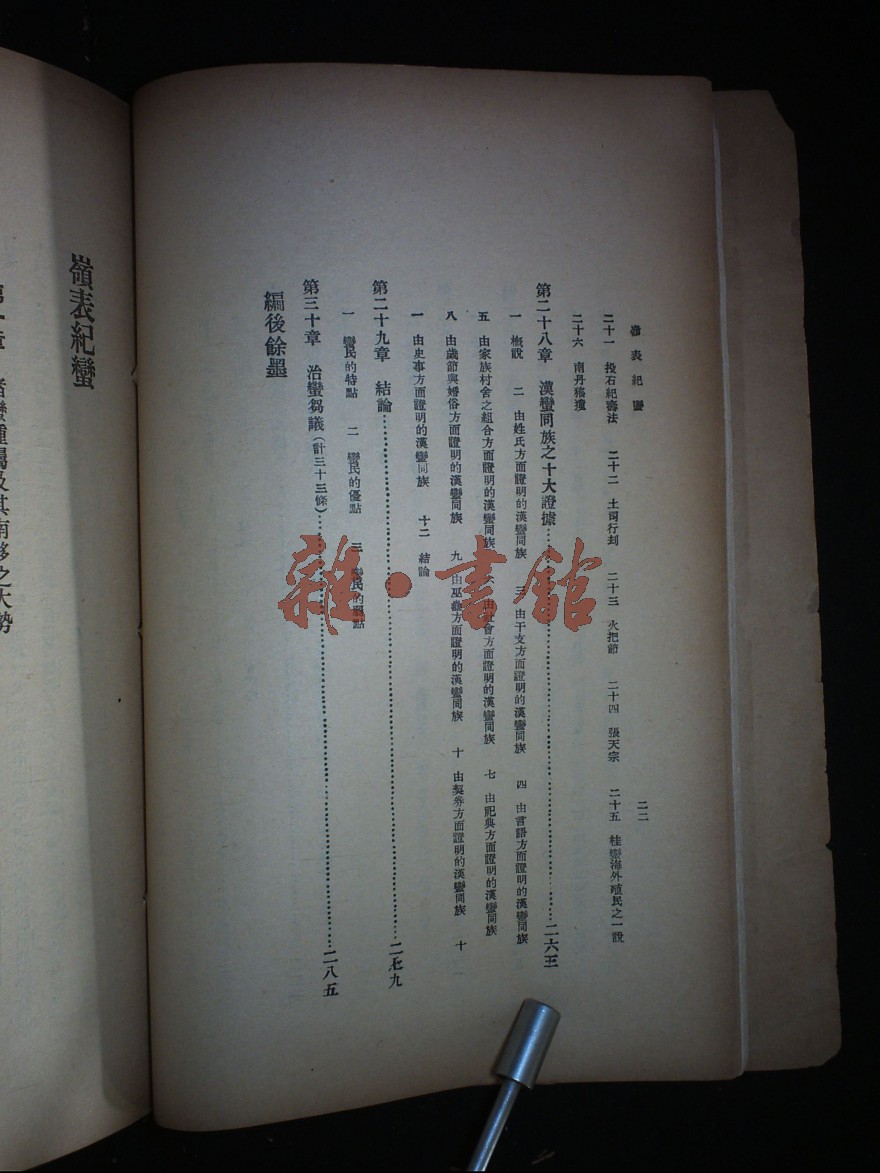 嶺表紀蠻
二二
二十一　投石紀壽法　二十二　土司行刦　二十三　火把節　二十四　張天宗　二十五　桂蠻海外殖民之一說
二十六　南丹豬瘟
第二十八章　漢蠻同族之十大證據……二六三
一　槪說　二　由姓氏方面證明的漢蠻同族　三　由干支方面證明的漢蠻同族　四　由言語方面證明的漢蠻同族
五　由家族村舍之組合方面證明的漢蠻同族　六　由社會方面證明的漢蠻同族　七　由祀典方面證明的漢蠻同族
八　由歲節與婚俗方面證明的漢蠻同族　九　由巫蠱方面證明的漢蠻同族　十　由契券方面證明的漢蠻同族　十
一　由史事方面證明的漢蠻同族　十二　結論
第二十九章　結論……二七九
一　蠻民的特點　二　蠻民的優點　三　蠻民的弱點
第三十章　治蠻芻議（計三十三條）……二八五
編後餘墨
雜·書館
嶺表紀蠻
第一章　諸蠻種屬及其南移之大勢